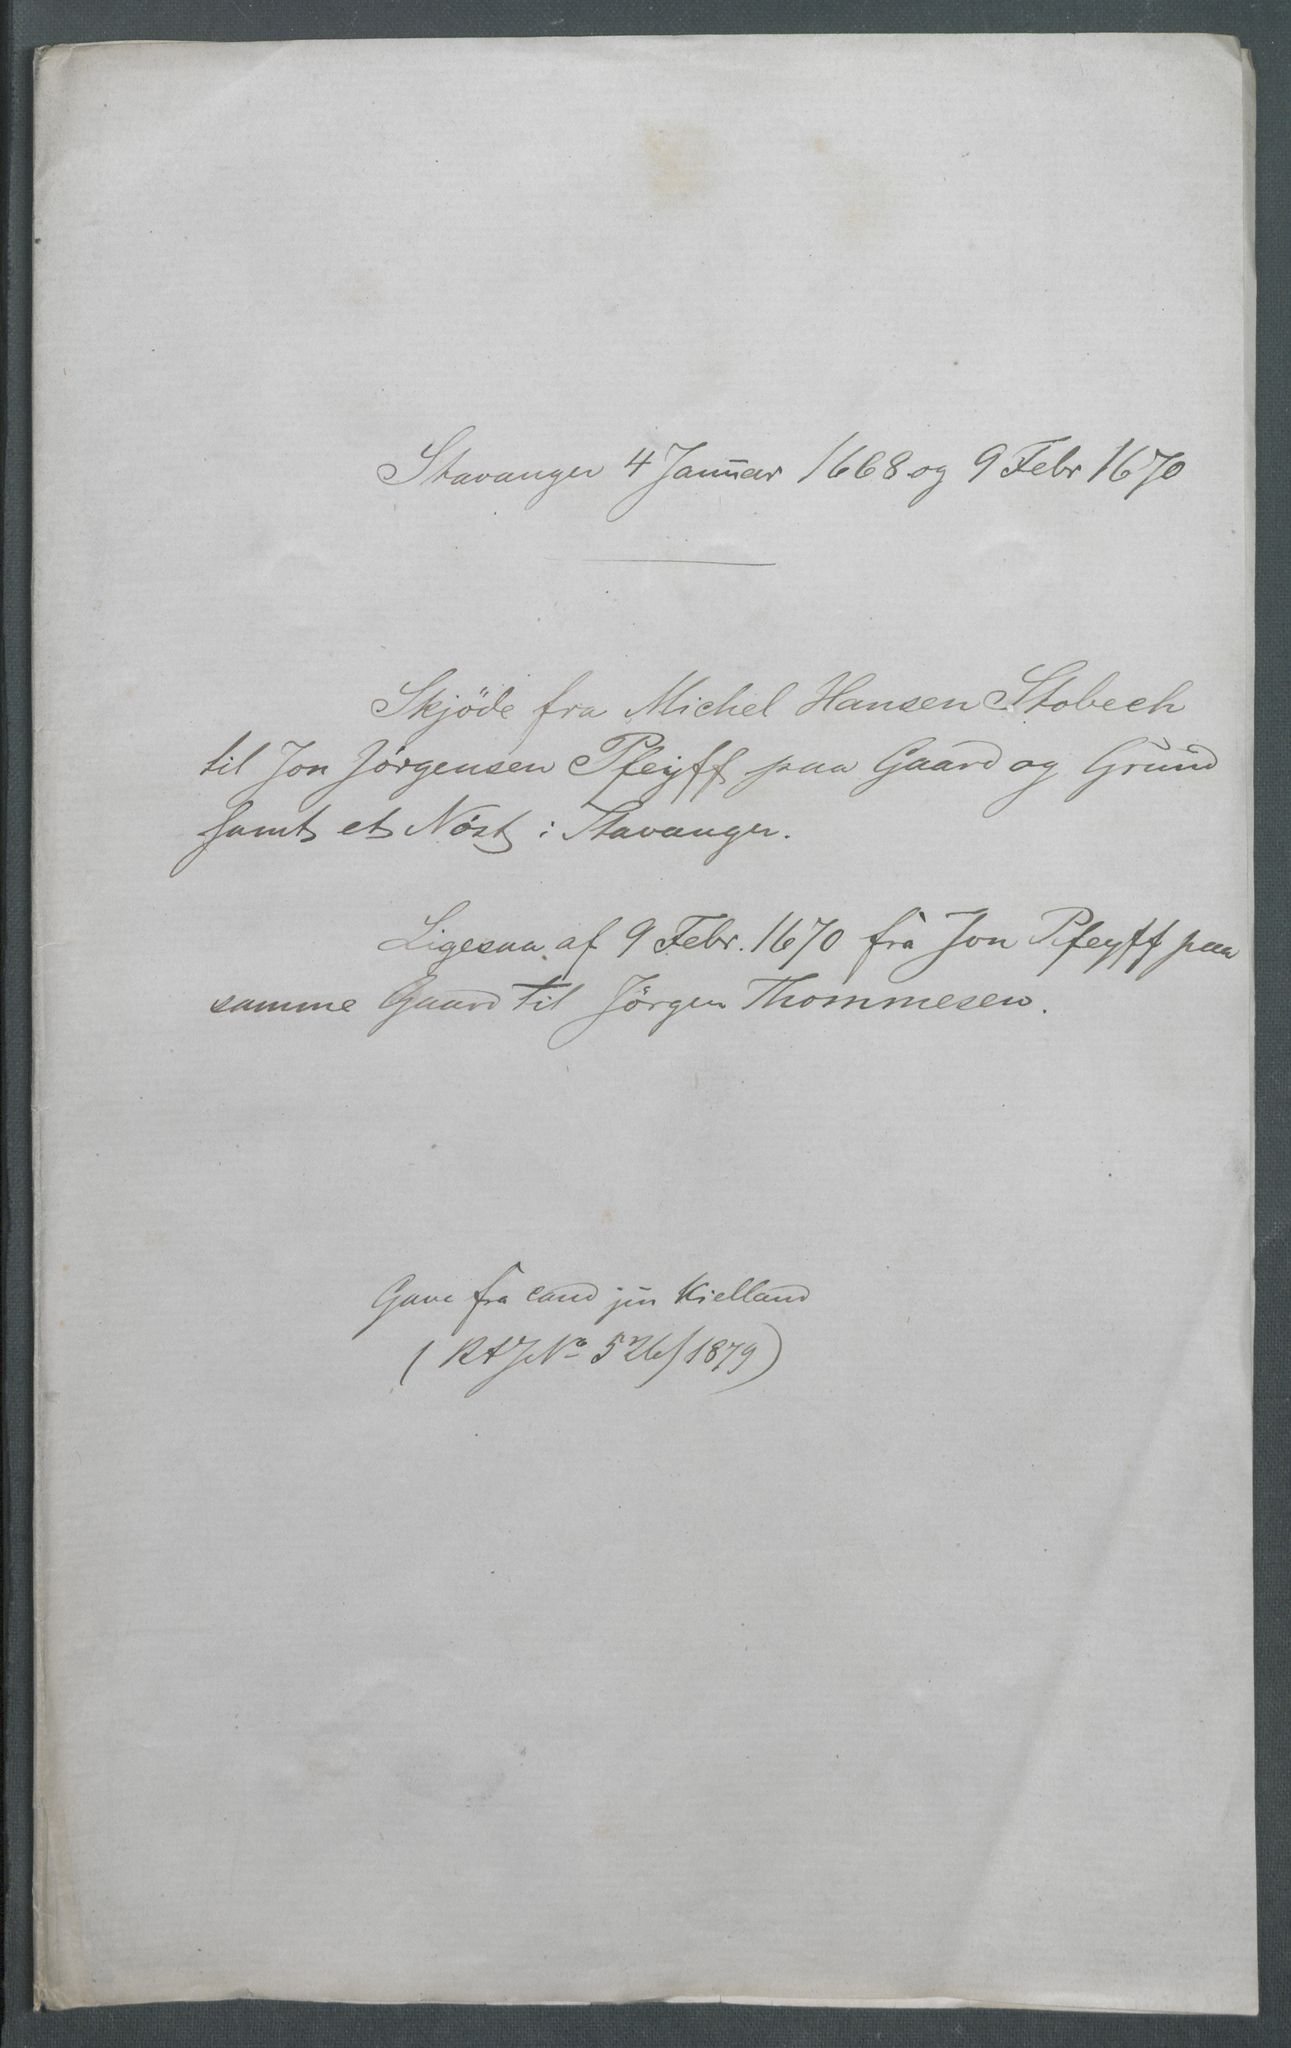 Stavanger 4 Januar 1668 og 9 Febr 1670
Skjöde fra Michel Hansen Stobech
til Jon Jörgensen Pfeyff paa Gaard og Grund
samt et Nöst i Stavanger.
Ligesaa af 9 Febr. 1670 fra Jon Pfeyff paa
samme Gaard til Jörgen Thommesen.
Gave fra cand jur Kielland
(RA J No 526/1879)